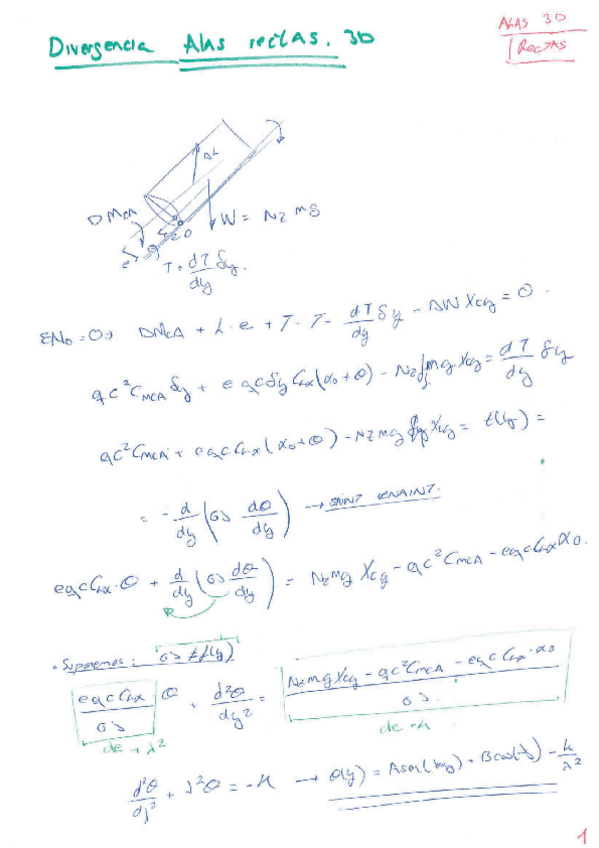 Divergencia Alas rectas. 3D
ALAS 3D
RECTAS
ΔL
ΔMCA
W = Nz mg
e
O
T + dT/dy δy.
ΣM₀ = 0 → ΔMCA + L·e + T - T - dT/dy δy - ΔW Xcg = 0.
qc²CMCA δy + e qc δy CLα(α₀ + θ) - Nz mg Xcg = dT/dy δy
qc²CMCA + eqc CLα(α₀ + θ) - Nz mg Xcg = t(y) =
= - d/dy (GJ dθ/dy) → SAINT VENAINT.
eqc CLα·θ + d/dy (GJ dθ/dy) = Nz mg Xcg - qc²CMCA - eqc CLα α₀.
• Suponemos: GJ ≠ f(y)
eqc CLα/GJ θ + d²θ/dy² = Nz mg Xcg - qc²CMCA - eqc CLα·α₀/GJ.
de → λ²
de -k
d²θ/dy² + λ²θ = -k → θ(y) = A sen(λy) + B cos(λy) - k/λ²
1